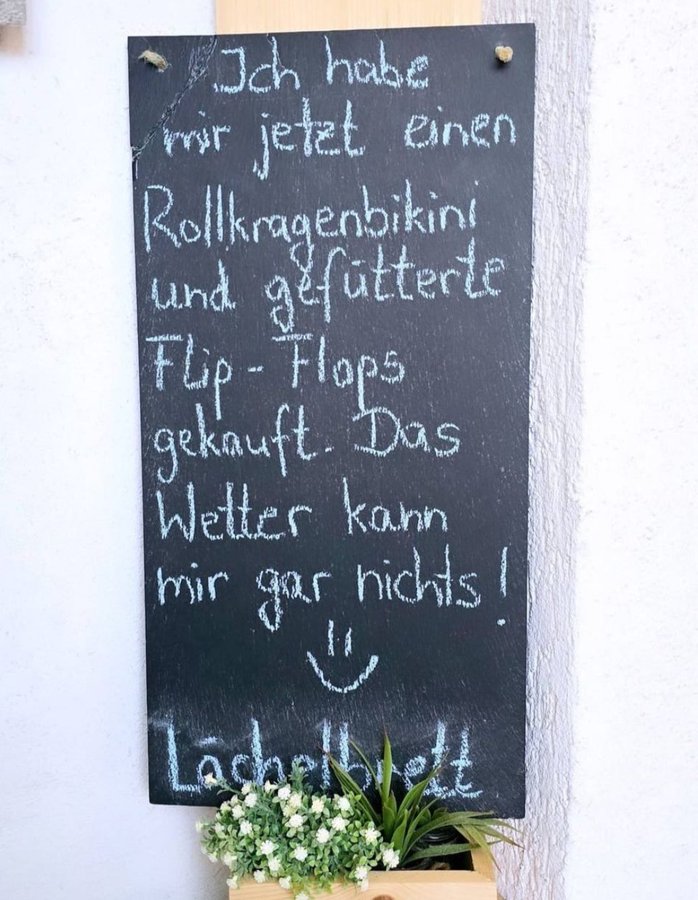 Ich habe
mir jetzt einen
Rollkragenbikini
und gefütterte
Flip-Flops
gekauft. Das
Wetter kann
mir gar nichts!
Lächelbrett